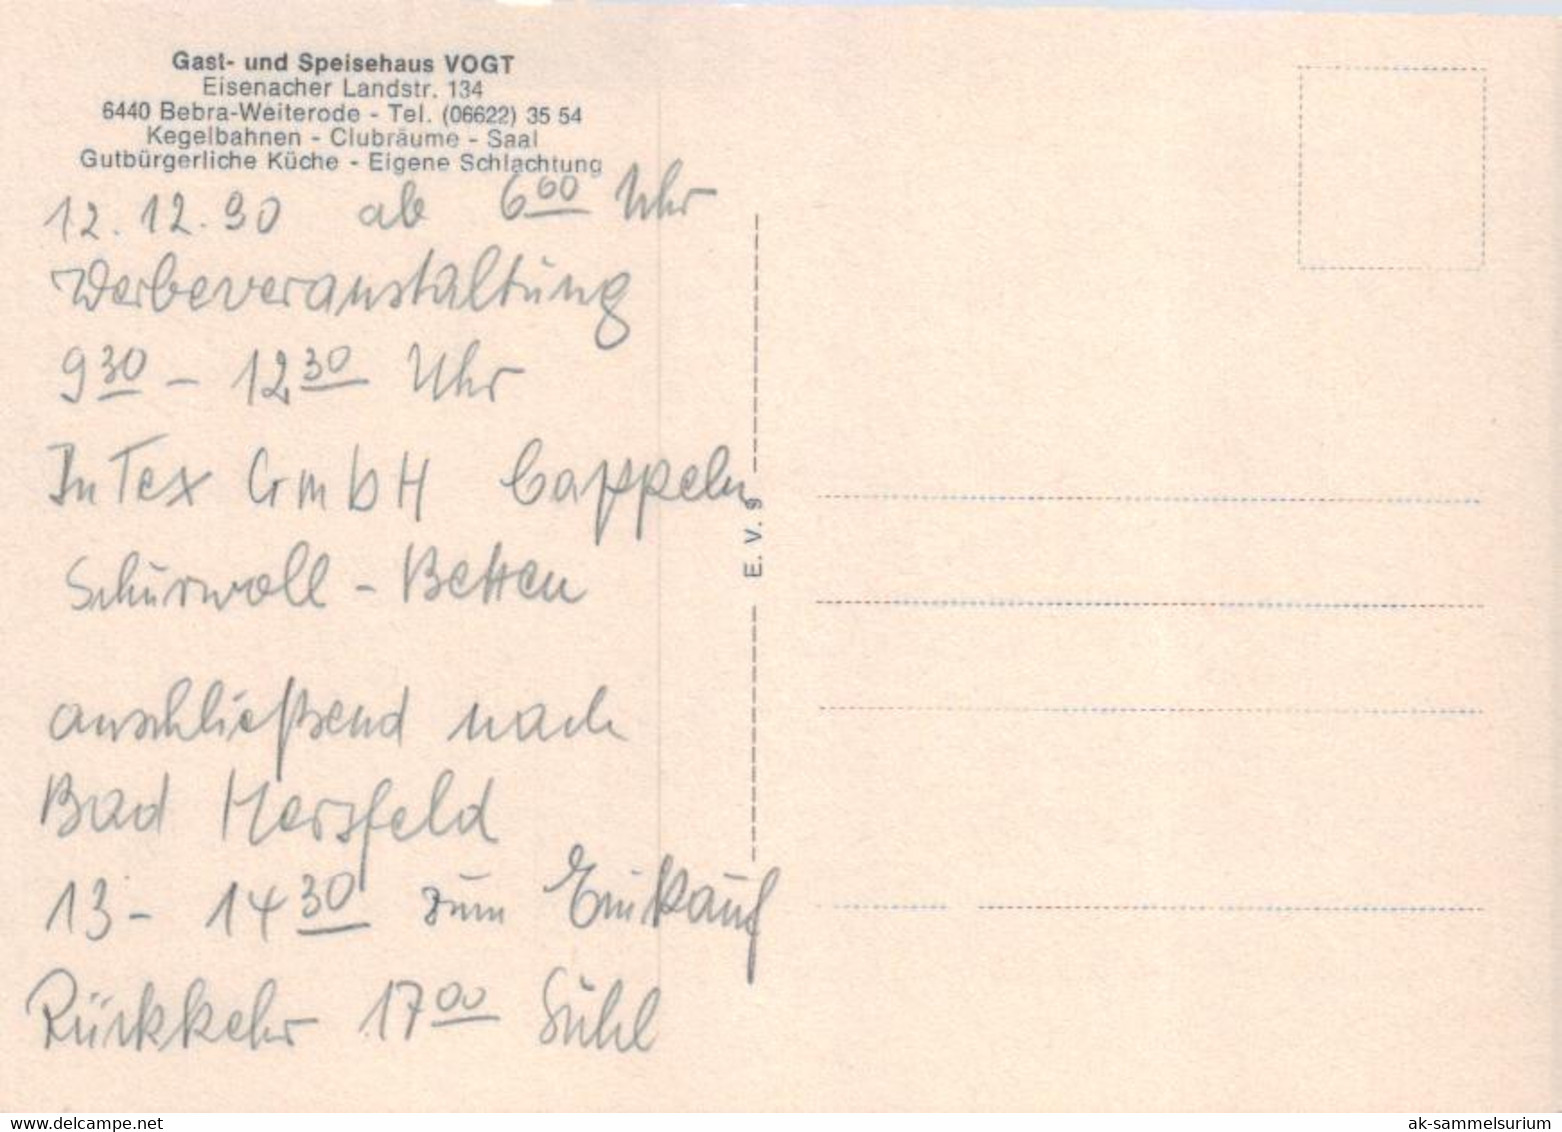 Gast- und Speisehaus VOGT
Eisenacher Landstr. 134
6440 Bebra-Weiterode - Tel. (06622) 35 54
Kegelbahnen - Clubräume - Saal
Gutbürgerliche Küche - Eigene Schlachtung
12.12.90 ab 6 00 Uhr
Werbeveranstaltung
9 30 - 12 30 Uhr
InTex GmbH Cappeln
Schurwoll - Betten
anschließend nach
Bad Hersfeld
13 - 14 30 zum Einkauf
Rückkehr 17 00 Suhl
E. V. 9
www.delcampe.net
ak-sammelsurium